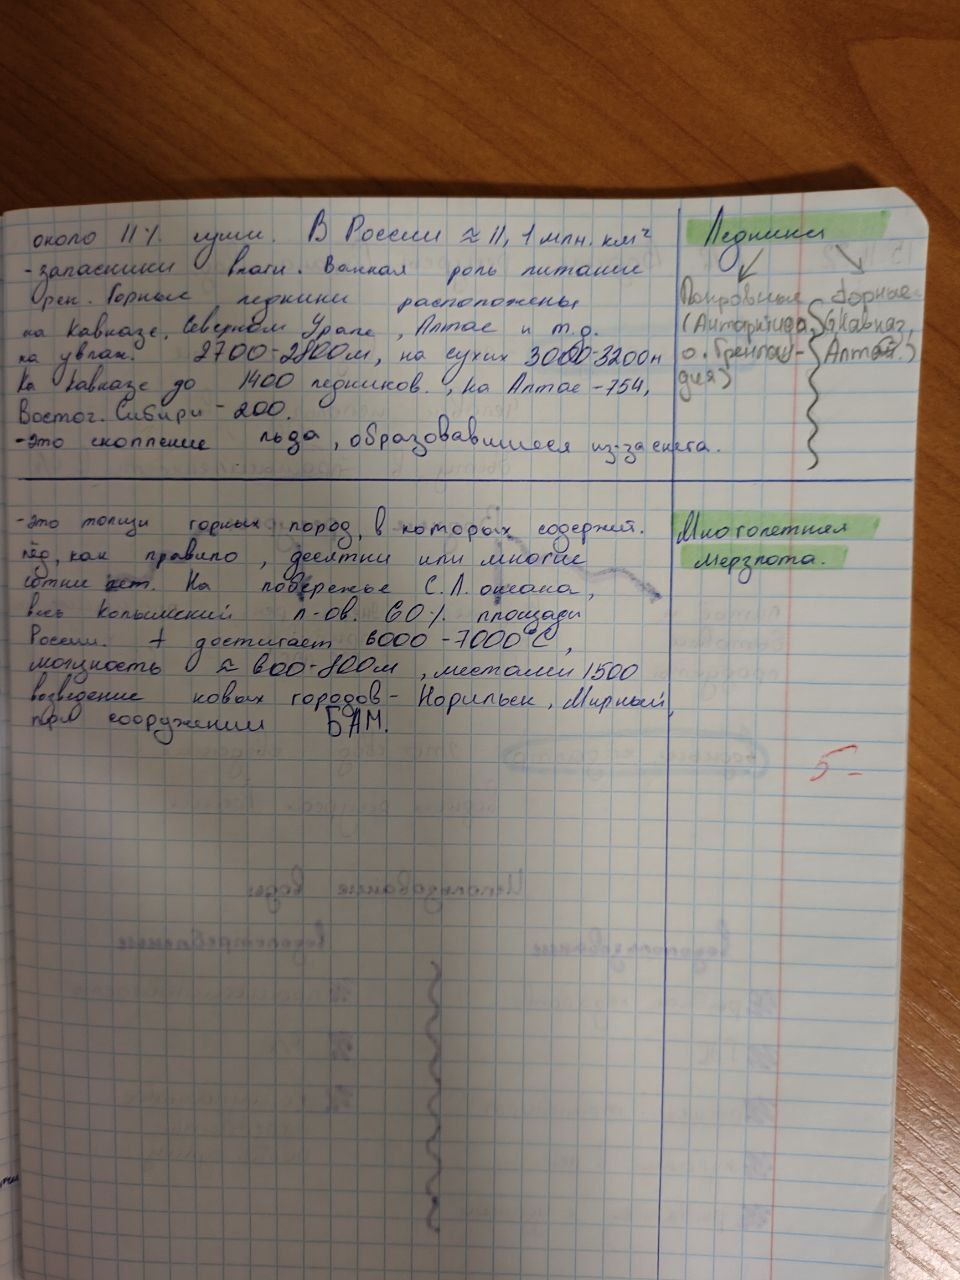 около 11% суши. В России ≈ 11,1 млн. км²
- запасники влаги. Важная роль питание
рек. Горные ледники расположены
на Кавказе, Северном Урале, Алтае и т.д.
на увлаж. 2700-2800м, на сухих 3000-3200м
На Кавказе до 1400 ледников., на Алтае - 754,
Восточ. Сибири - 200.
- это скопление льда, образовавшиеся из-за снега.
Ледники
Покровные
(Антарктида,
о. Гренлан-
дия)
Горные
(Кавказ,
Алтай.)
- это толщи горных пород, в которых содержит.
лёд, как правило, десятки или многие
сотни лет. На побережье С.Л. океана,
весь Колымский п-ов. 60% площади
России. t достигает 6000-7000°C,
мощность ≈ 600-800м, местами 1500
возведение новых городов - Норильск, Мирный,
при сооружении БАМ.
Многолетняя
мерзлота.
5-